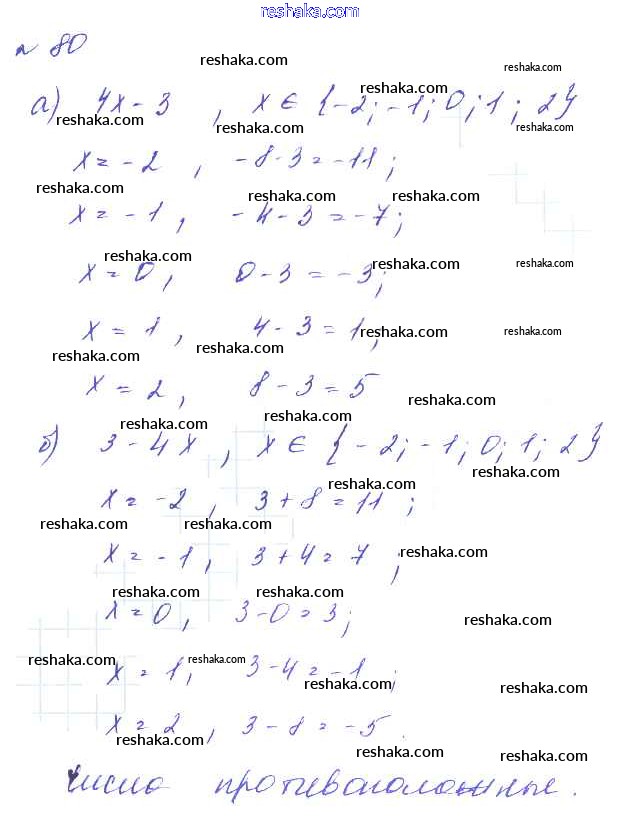 reshaka.com
№ 80
reshaka.com reshaka.com
а) 4x - 3 , x ∈ {-2; -1; 0; 1; 2}
reshaka.com reshaka.com reshaka.com reshaka.com
x = -2 , -8-3 = -11;
reshaka.com reshaka.com reshaka.com
x = -1 , -4-3 = -7;
reshaka.com reshaka.com reshaka.com
x = 0 , 0-3 = -3;
x = 1 , 4-3 = 1;
reshaka.com reshaka.com reshaka.com reshaka.com
x = 2 , 8-3 = 5
reshaka.com reshaka.com reshaka.com
б) 3-4x , x ∈ {-2; -1; 0; 1; 2}
reshaka.com reshaka.com
x = -2 , 3+8 = 11 ;
reshaka.com reshaka.com
x = -1 , 3+4 = 7 ;
reshaka.com reshaka.com reshaka.com
x = 0 , 3-0 = 3;
reshaka.com
x = 1 , 3-4 = -1 ;
reshaka.com reshaka.com reshaka.com reshaka.com
x = 2 , 3-8 = -5 .
reshaka.com reshaka.com reshaka.com
числа противоположные.